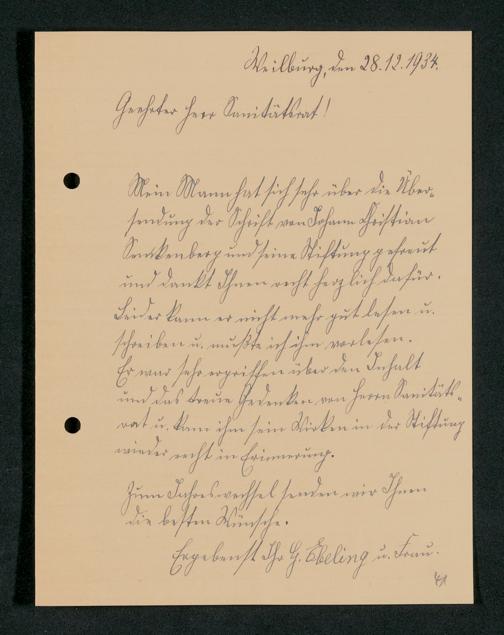 Weilburg, den 28.12.1934.
Geehrter Herr Sanitätsrat!
Mein Mann hat sich sehr über die Über-
sendung der Schrift von Johann Christian
Senckenberg und seine Stiftung gefreut
und dankt Ihnen recht herzlich dafür.
Leider kann er nicht mehr gut lesen u.
schreiben u. mußte ich ihm vorlesen.
Er war sehr ergriffen über den Inhalt
und das treue Gedenken von Herrn Sanitäts-
rat u. kam ihm sein Wirken in der Stiftung
wieder recht in Erinnerung.
Zum Jahreswechsel senden wir Ihnen
die besten Wünsche.
Ergebenst Ihr G. Ebeling u. Frau.